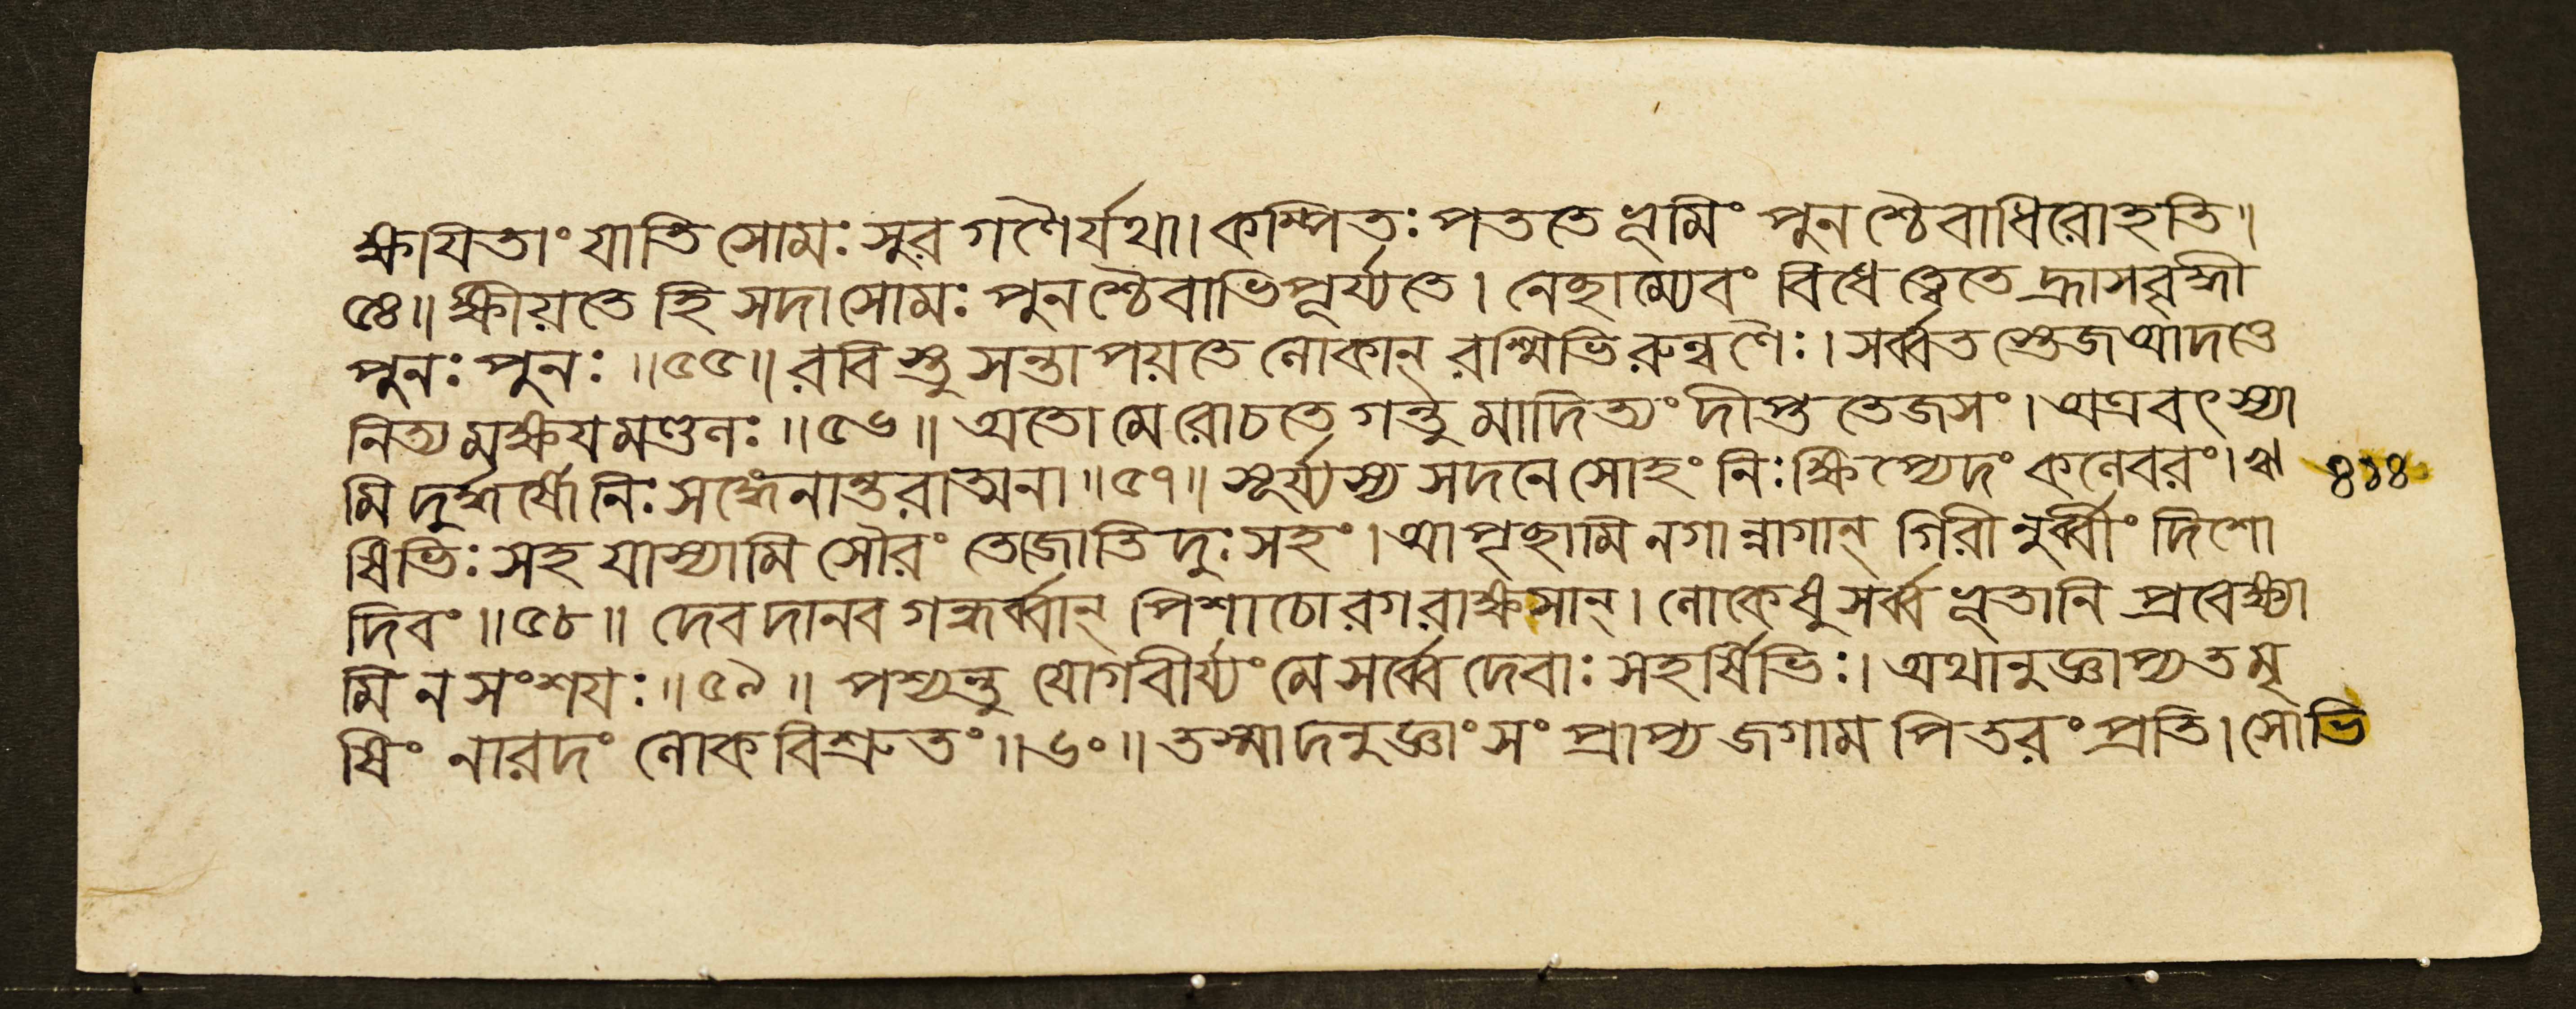 ক্ষায়িতাং যাতি সোমঃ সুরগণৈর্যথা। কম্পিতঃ পততে ভূমিং পুনশ্চৈবাধিরোহতি॥
৫৪॥ ক্ষীয়তে হি সদা সোমঃ পুনশ্চৈবাভিপূর্য্যতে। নেছাম্যেবং বিধে ত্বেতে হ্রাসবৃদ্ধী
পুনঃ পুনঃ॥৫৫॥ রবিস্তু সন্তাপয়তে লোকান্ রশ্মিভিরুল্বণৈঃ। সর্ব্বতস্তেজ আদত্তে
নিত্যমক্ষয়মণ্ডলঃ॥৫৬॥ অতো মে রোচতে গন্তুমাদিত্যং দীপ্ততেজসং। অত্রবৎস্যা
মি দুর্দ্ধর্ষো নিঃসঙ্গেনান্তরাত্মনা॥৫৭॥ সূর্য্যস্য সদনে সোহং নিঃক্ষিপ্যেদং কলেবরং। ঋ ৪১৪
ষিভিঃ সহ যাস্যামি সৌরং তেজোতিদুঃসহং। আপৃছামি নগান্নাগান্ গিরীনুর্ব্বীং দিশো
দিবং॥৫৮॥ দেবদানবগন্ধর্ব্বান্ পিশাচোরগরাক্ষসান্। লোকেষু সর্ব্বভূতানি প্রবেক্ষ্যা
মি ন সংশয়ঃ॥৫৯॥ পশ্যন্তু যোগবীর্য্যং মে সর্ব্বে দেবাঃ সহর্ষিভিঃ। অথানুজ্ঞাপ্য তমৃ
ষিং নারদং লোকবিশ্রুতং॥৬০॥ তস্মাদনুজ্ঞাং সংপ্রাপ্য জগাম পিতরং প্রতি। সোভি